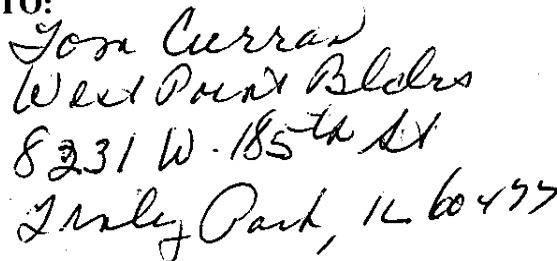 TO:
Tom Curran
West Point Bldrs
8231 W. 185th St
Tinley Park, IL 60477